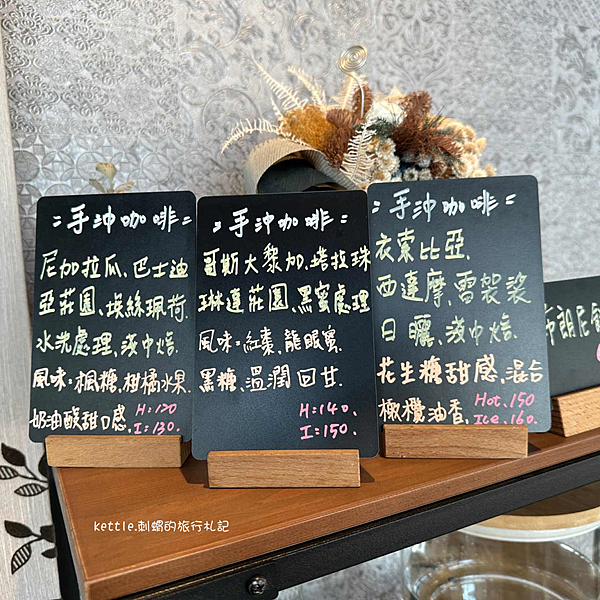 =手沖咖啡=
尼加拉瓜.巴士迪
亞莊園.埃絲珮荷.
水洗處理.淺中焙.
風味=楓糖.柑橘水果.
奶油酸甜口感.
H=120
I=130.
=手沖咖啡=
哥斯大黎加.塔拉珠
琳達莊園.黑蜜處理
風味=紅棗.龍眼蜜.
黑糖.溫潤回甘.
H=140.
I=150.
=手沖咖啡=
衣索比亞.
西達摩.雪袈裟
日曬.淺中焙.
花生糖甜感.混合
橄欖油香.
Hot.150
Ice.160.
布朗尼
kettle.刺蝟的旅行札記